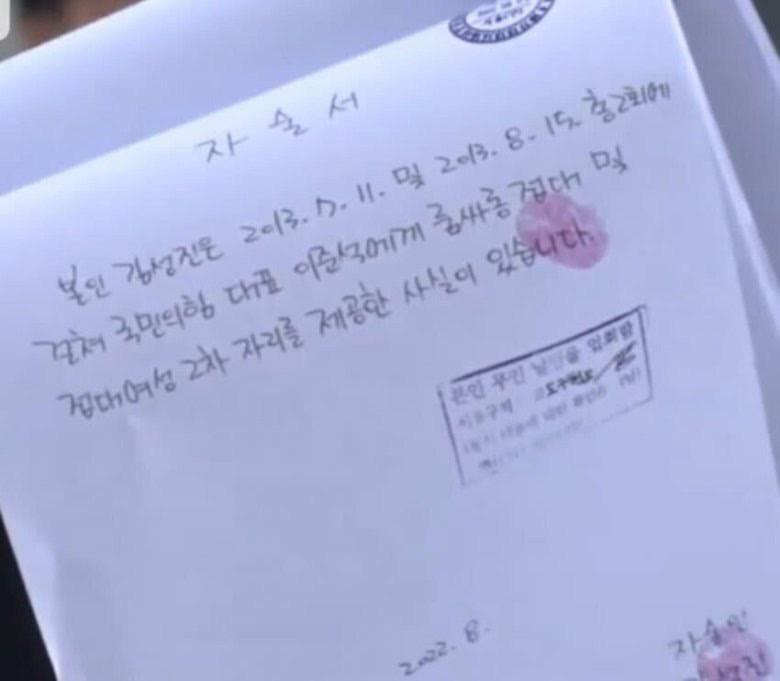 자술서
본인 김성진은 2013.7.11. 및 2013.8.15. 총2회에
걸쳐 국민의힘 대표 이준석에게 룸싸롱 접대 및
접대여성 2차 자리를 제공한 사실이 있습니다.
본인 무인 날인을 입회함
2022. 8.
자술인